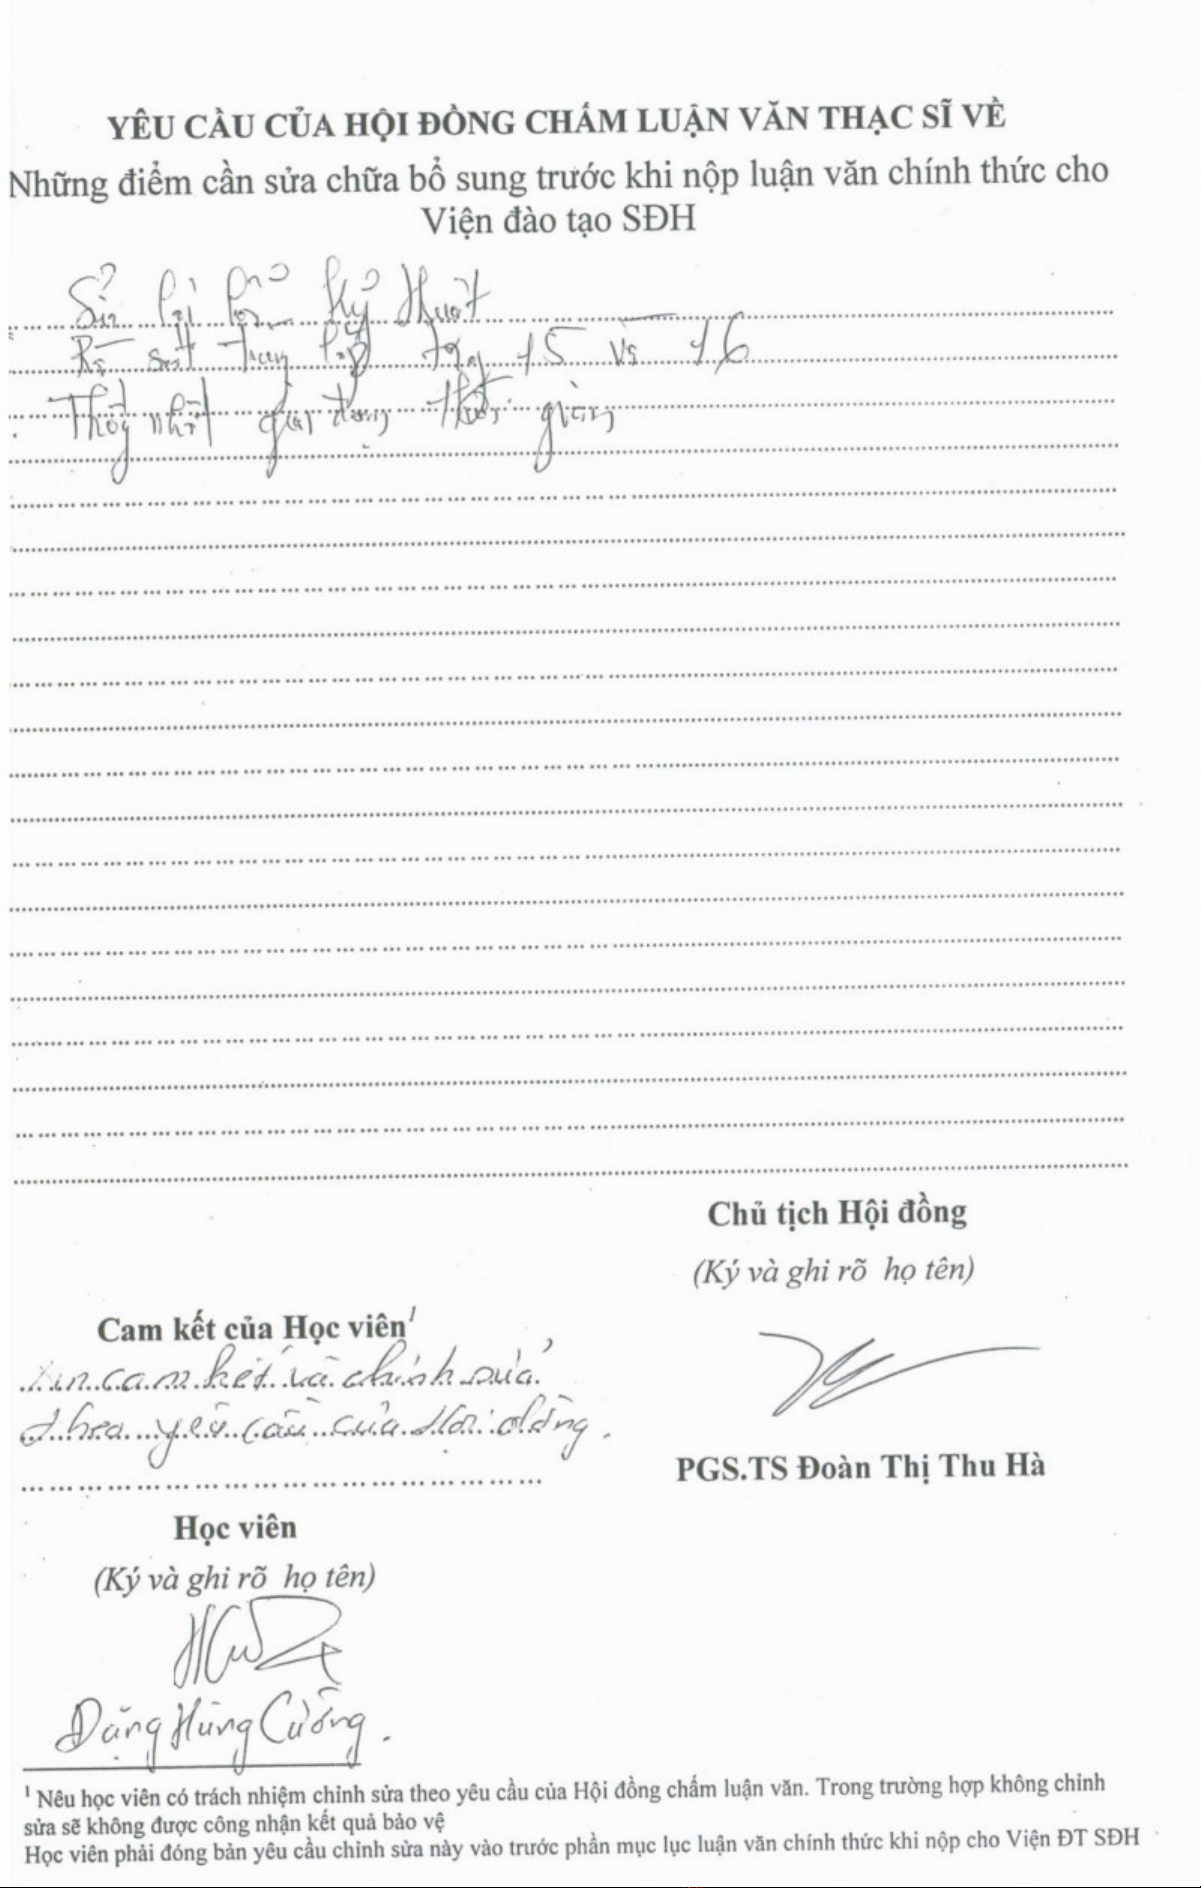 YÊU CẦU CỦA HỘI ĐỒNG CHẤM LUẬN VĂN THẠC SĨ VỀ
Những điểm cần sửa chữa bổ sung trước khi nộp luận văn chính thức cho
Viện đào tạo SĐH
Sửa lại lỗi kỹ thuật
Rà soát trùng lặp trang 15 và 16
Thống nhất giai đoạn thời gian
Chủ tịch Hội đồng
(Ký và ghi rõ họ tên)
Cam kết của Học viên1
Xin cam kết và chỉnh sửa
theo yêu cầu của Hội đồng.
PGS.TS Đoàn Thị Thu Hà
Học viên
(Ký và ghi rõ họ tên)
Đặng Hùng Cường.
1 Nêu học viên có trách nhiệm chỉnh sửa theo yêu cầu của Hội đồng chấm luận văn. Trong trường hợp không chỉnh
sửa sẽ không được công nhận kết quả bảo vệ
Học viên phải đóng bản yêu cầu chỉnh sửa này vào trước phần mục lục luận văn chính thức khi nộp cho Viện ĐT SĐH